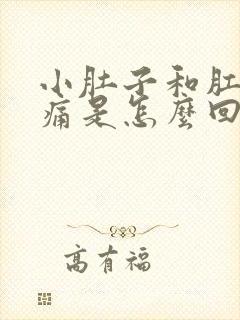 小肚子和肚
痛是怎麼回
高有福